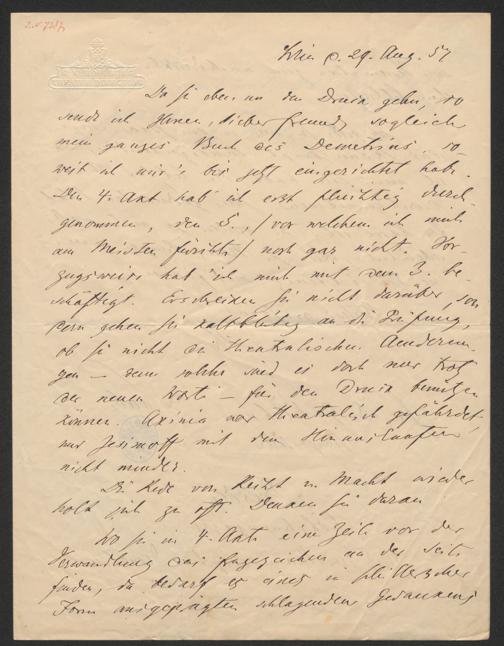 Wien d. 29. Aug. 57
Da Sie eben an den Druck gehn, so
sende ich Ihnen, lieber Freund, sogleich
mein ganzes Buch des Demetrius, so
weit ich mir's bis jetzt eingerichtet habe.
Den 4. Akt hab ich erst flüchtig durch-
genommen, den 5., (vor welchem ich mich
am Meisten fürchte) noch gar nicht. Vor-
zugsweise hab ich mich mit dem 3. be-
schäftigt. Erschrecken Sie nicht darüber, son
dern gehen Sie kaltblütig an die Prüfung,
ob Sie nicht die theatralischen Aenderun
gen – denn solche sind es doch nur trotz
der neuen Worte – für den Druck benützen
können. Axinia war theatralisch gefährdet
und mit dem Hinauslaufen
nicht minder.
Die Rede von Recht u. Macht wieder
holt sich zu oft. Denken Sie daran
Wo Sie im 4. Akte eine Zeile vor der
Verwandlung das Fragezeichen an der Seite
finden, da bedarf es eines in Schillerscher
Form ausgeprägten schlagenden Gedankens